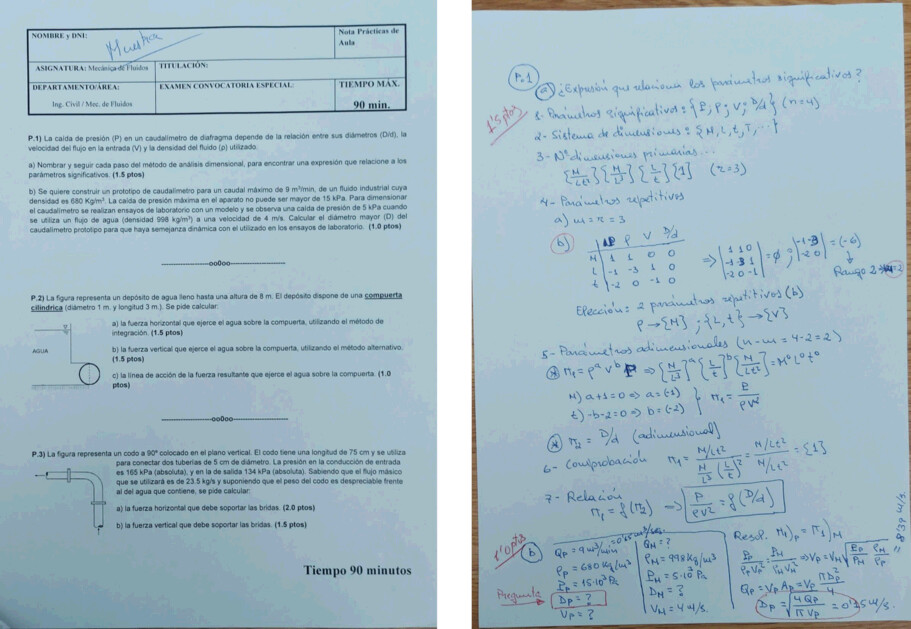 NOMBRE y DNI:
Muestra
Nota Prácticas de
Aula
ASIGNATURA: Mecánica de Fluidos
TITULACIÓN:
DEPARTAMENTO/ÁREA:
Ing. Civil / Mec. de Fluidos
EXAMEN CONVOCATORIA ESPECIAL.
TIEMPO MÁX.
90 min.
P.1) La caída de presión (P) en un caudalímetro de diafragma depende de la relación entre sus diámetros (D/d), la
velocidad del flujo en la entrada (V) y la densidad del fluido (ρ) utilizado.
a) Nombrar y seguir cada paso del método de análisis dimensional, para encontrar una expresión que relacione a los
parámetros significativos. (1.5 ptos)
b) Se quiere construir un prototipo de caudalímetro para un caudal máximo de 9 m³/min, de un fluido industrial cuya
densidad es 680 Kg/m³. La caída de presión máxima en el aparato no puede ser mayor de 15 kPa. Para dimensionar
el caudalímetro se realizan ensayos de laboratorio con un modelo y se observa una caída de presión de 5 kPa cuando
se utiliza un flujo de agua (densidad 998 kg/m³) a una velocidad de 4 m/s. Calcular el diámetro mayor (D) del
caudalímetro prototipo para que haya semejanza dinámica con el utilizado en los ensayos de laboratorio. (1.0 ptos)
ooOoo
P.2) La figura representa un depósito de agua lleno hasta una altura de 8 m. El depósito dispone de una compuerta
cilíndrica (diámetro 1 m. y longitud 3 m.). Se pide calcular:
a) la fuerza horizontal que ejerce el agua sobre la compuerta, utilizando el método de
integración. (1.5 ptos)
AGUA
b) la fuerza vertical que ejerce el agua sobre la compuerta, utilizando el método alternativo.
(1.5 ptos)
c) la línea de acción de la fuerza resultante que ejerce el agua sobre la compuerta. (1.0
ptos)
ooOoo
P.3) La figura representa un codo a 90º colocado en el plano vertical. El codo tiene una longitud de 75 cm y se utiliza
para conectar dos tuberías de 5 cm de diámetro. La presión en la conducción de entrada
es 165 kPa (absoluta), y en la de salida 134 kPa (absoluta). Sabiendo que el flujo másico
que se utilizará es de 23.5 kg/s y suponiendo que el peso del codo es despreciable frente
al del agua que contiene, se pide calcular:
a) la fuerza horizontal que debe soportar las bridas. (2.0 ptos)
b) la fuerza vertical que debe soportar las bridas. (1.5 ptos)
Tiempo 90 minutos
P.1
a) ¿Expresión que relaciona los parámetros significativos?
1'5 ptos
1- Parámetros significativos: {P, ρ, V, D/d} (n=4)
2- Sistema de dimensiones: {M, L, t, T, ...}
3- Nº dimensiones primarias...
{M/Lt²} {M/L³} {L/t} {1} (r=3)
4- Parámetros repetitivos
a) m = r = 3
b)
P ρ V D/d
M 1 1 0 0
L -1 -3 1 0
t -2 0 -1 0
⇒ |1 1 0; -1 -3 1; -2 0 -1| = ø ; |-1 -3; -2 0| = (-6)
Rango 2
Elección: 2 parámetros repetitivos (b)
ρ → {M} ; {L, t} → {V}
5- Parámetros adimensionales (n-m = 4-2 = 2)
π₁ = ρᵃ Vᵇ P ⇒ {M/L³}ᵃ {L/t}ᵇ {M/Lt²} = M⁰ L⁰ t⁰
M) a+1=0 ⇒ a=(-1)
t) -b-2=0 ⇒ b=(-2)
π₁ = P/ρV²
π₂ = D/d (adimensional)
6- Comprobación π₁ = M/Lt² / M/L³ (L/t)² = M/Lt² / M/Lt² = {1}
7- Relación
π₁ = f(π₂) ⇒ P/ρV² = f(D/d)
1'0 ptos
b
Qp = 9 m³/min = 0'15 m³/sg.
ρp = 680 kg/m³
Pp = 15·10³ Pa
Pregunta → Dp = ?
Vp = ?
QM = ?
ρM = 998 kg/m³
PM = 5·10³ Pa
DM = ?
VM = 4 m/s.
Resol. π₁)p = π₁)M
Pp/ρpVp² = PM/ρMVM² ⇒ Vp = VM √(Pp/PM ρM/ρp) = 8'39 m/s.
Qp = Vp Ap = Vp πDp²/4
Dp = √(4Qp/πVp) = 0'15 m/.